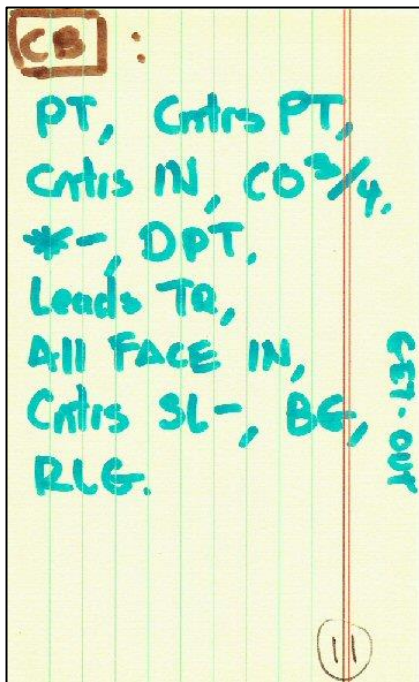 CB :
PT, Cntrs PT,
Cntrs IN, CO 3/4,
*-, DPT,
Leads TR,
All FACE IN,
Cntrs SL-, BG,
RLG.
GET-OUT
11